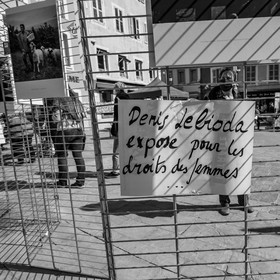 Denis Lebioda
expose pour les
droits des femmes
...